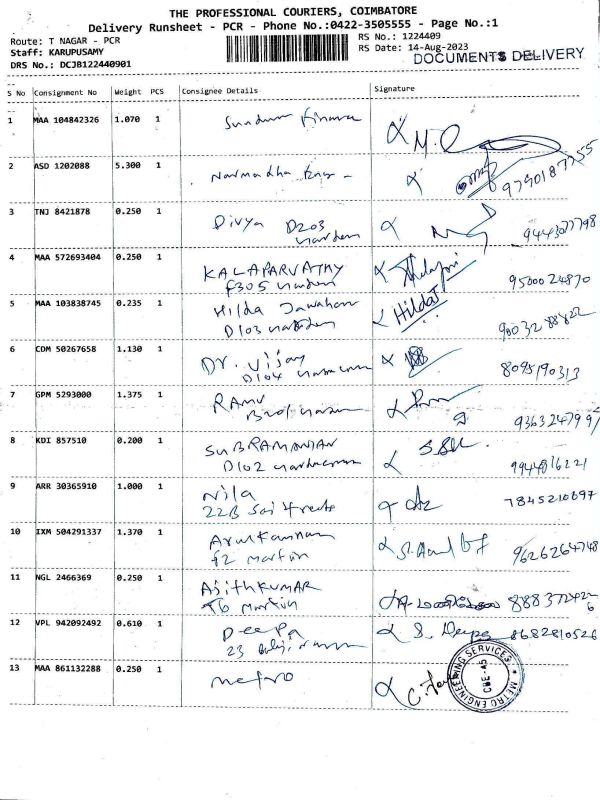 THE PROFESSIONAL COURIERS, COIMBATORE
Delivery Runsheet - PCR - Phone No.:0422-3505555 - Page No.:1
Route: T NAGAR - PCR
RS No.: 1224409
Staff: KARUPUSAMY
RS Date: 14-Aug-2023
DRS No.: DCJB122440901
DOCUMENTS DELIVERY
S No Consignment No Weight PCS Consignee Details Signature
1 MAA 104842326 1.070 1 Sundar Finance
2 ASD 1202088 5.300 1 Narmadha 9790187755
3 TNJ 8421878 0.250 1 Divya D203 9443077798
4 MAA 572693404 0.250 1 KALAPARVATHY
F305 9500024870
5 MAA 103838745 0.235 1 Hilda Jawahar Hilda J
D103
6 CDM 50267658 1.130 1 Dr. Vijay
D104 8098190313
7 GPM 5293000 1.375 1 RAMU
9363247997
8 KDI 857510 0.200 1 SUBRAMANIAN
D102 9944816221
9 ARR 30365910 1.000 1 Nila 7845210697
22B Sai
10 IXM 504291337 1.370 1 Arulkannan
F2 Martin 9626264748
11 NGL 2466369 0.250 1 AJITHKUMAR
T6 Martin
12 VPL 942092492 0.610 1 Deepa S. Deepa 8682810526
23
13 MAA 861132288 0.250 1 Metro
METRO ENGINEERING SERVICES
CBE-45